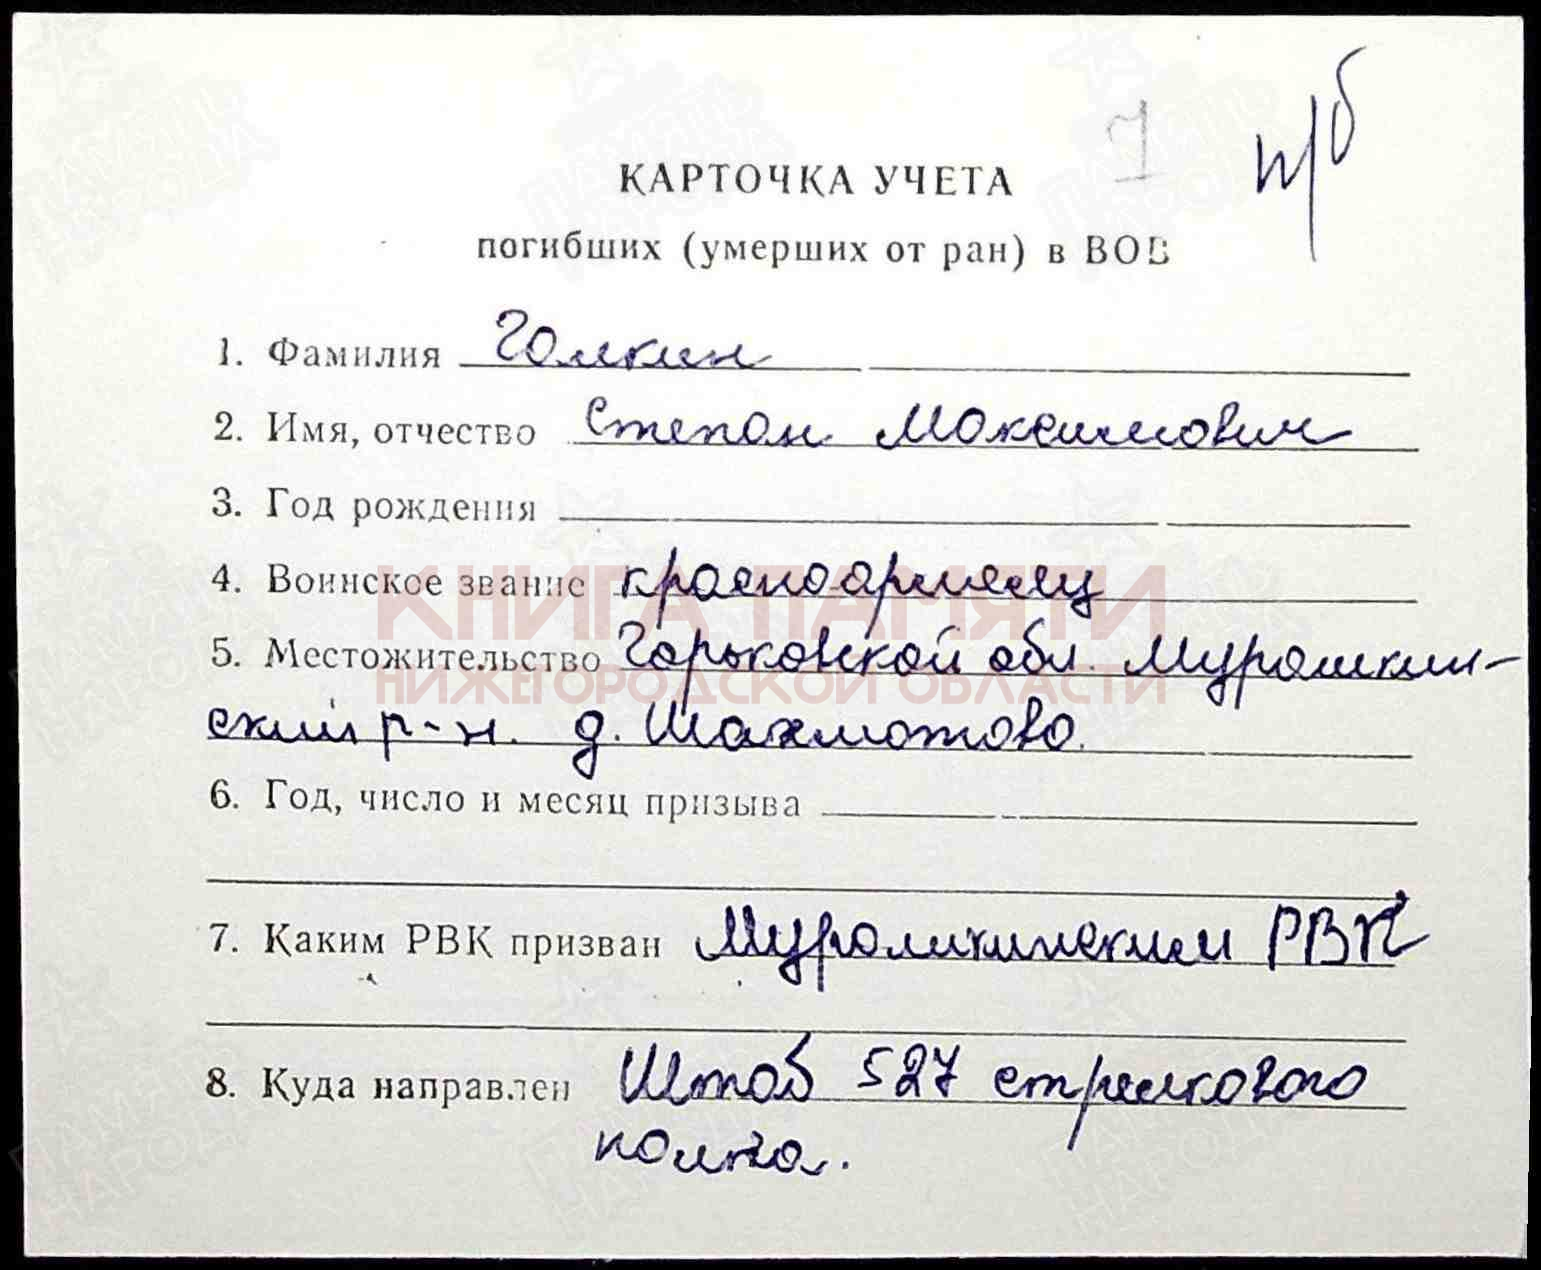 7
п/б
КАРТОЧКА УЧЕТА
погибших (умерших от ран) в ВОВ
1. Фамилия Голкин
2. Имя, отчество Степан Максимович
3. Год рождения
4. Воинское звание красноармеец
КНИГА ПАМЯТИ
5. Местожительство Горьковской обл. Мурашкин-
НИЖЕГОРОДСКОЙ ОБЛАСТИ
ский р-н. д. Шахматово.
6. Год, число и месяц призыва
7. Каким РВК призван Мурашкинским РВК
8. Куда направлен Штаб 527 стрелкового
полка.